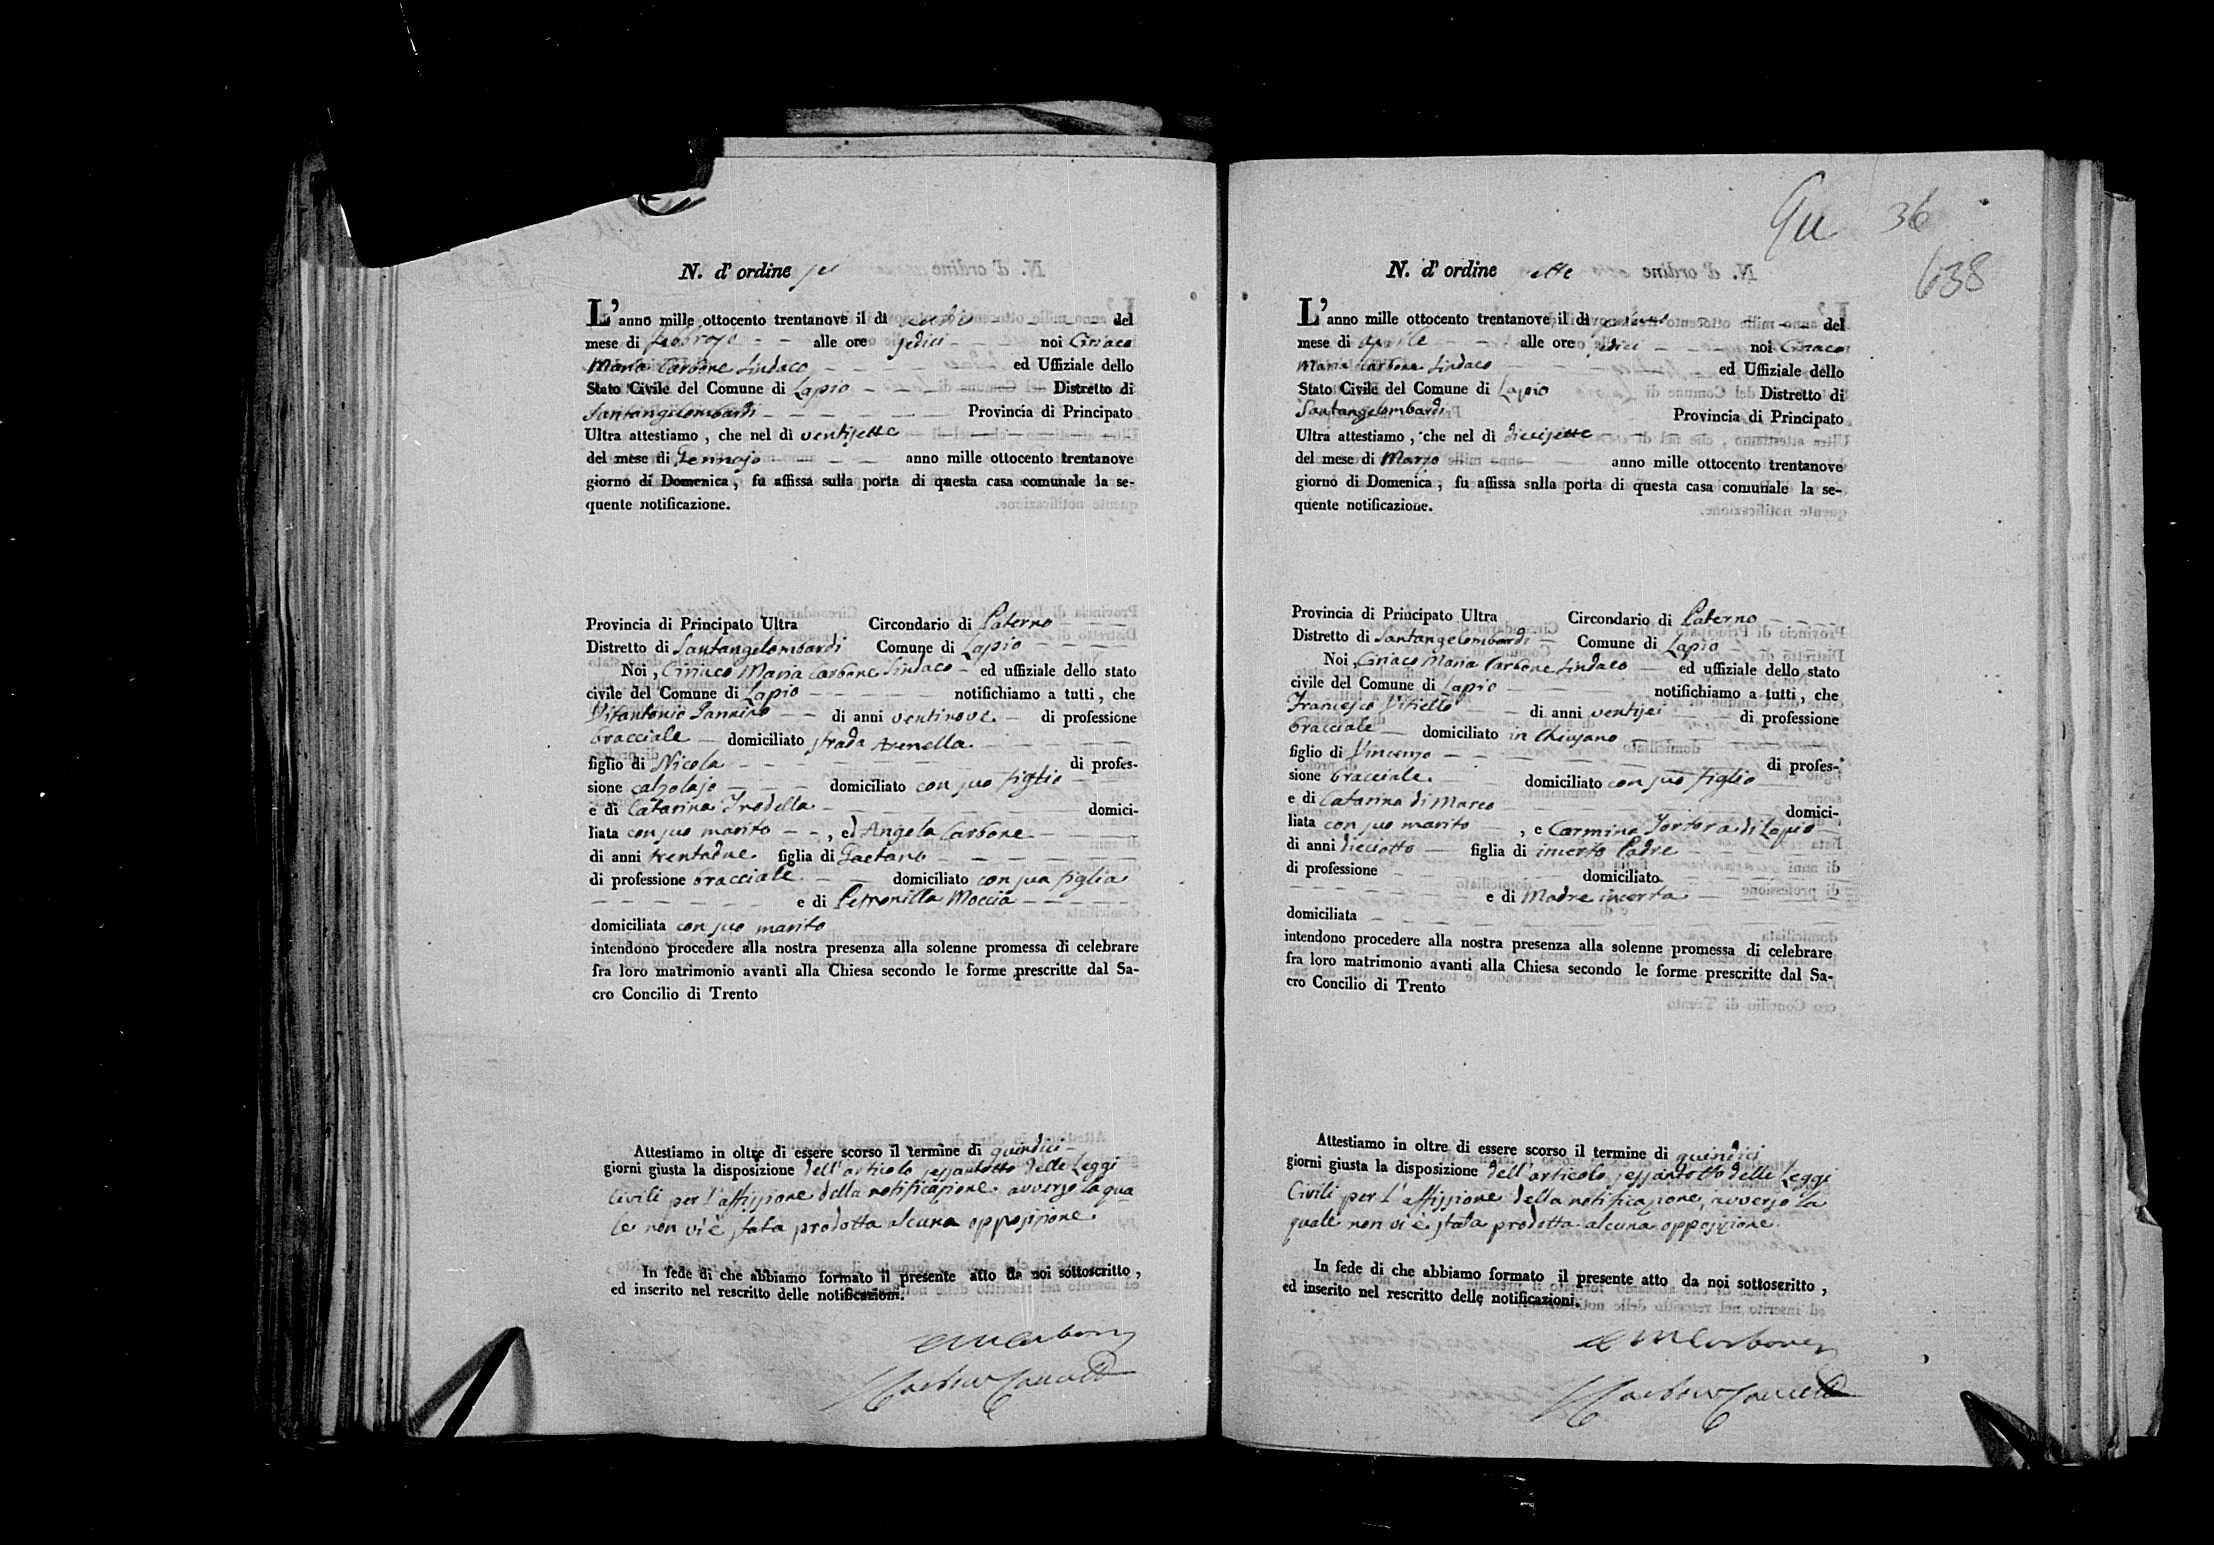 N. d' ordine sei
L'anno mille ottocento trentanove il dì del
mese di Febbrajo alle ore sedici noi Ciriaco
Maria Carbone Sindaco ed Uffiziale dello
Stato Civile del Comune di Lapio Distretto di
Santangelombardi Provincia di Principato
Ultra attestiamo , che nel dì ventisette
del mese di Gennajo anno mille ottocento trentanove
giorno di Domenica , fu affissa sulla porta di questa casa comunale la se-
quente notificazione.
Provincia di Principato Ultra Circondario di Paterno
Distretto di Santangelombardi Comune di Lapio
Noi , Ciriaco Maria Carbone Sindaco ed uffiziale dello stato
civile del Comune di Lapio notifichiamo a tutti , che
Vitantonio Iannino di anni ventinove di professione
bracciale domiciliato strada Arenella
figlio di Nicola di profes-
sione calzolajo domiciliato con suo figlio
e di Catarina Trodella domici-
liata con suo marito , ed Angela Carbone
di anni trentadue figlia di Gaetano
di professione bracciale domiciliato con sua figlia
e di Petronilla Moccia
domiciliata con suo marito
intendono procedere alla nostra presenza alla solenne promessa di celebrare
fra loro matrimonio avanti alla Chiesa secondo le forme prescritte dal Sa-
cro Concilio di Trento
Attestiamo in oltre di essere scorso il termine di quindici
giorni giusta la disposizione dell'articolo sessantotto delle Leggi
Civili per l'affissione della notificazione avverso la qua
le non vi è stata prodotta alcuna opposizione
In fede di che abbiamo formato il presente atto da noi sottoscritto ,
ed inserito nel rescritto delle notificazioni.
C M Carbone
36
638
N. d' ordine sette
L'anno mille ottocento trentanove il dì del
mese di Aprile alle ore sedici noi Ciriaco
Maria Carbone Sindaco ed Uffiziale dello
Stato Civile del Comune di Lapio Distretto di
Santangelombardi Provincia di Principato
Ultra attestiamo , che nel dì diecisette
del mese di Marzo anno mille ottocento trentanove
giorno di Domenica , fu affissa sulla porta di questa casa comunale la se-
quente notificazione.
Provincia di Principato Ultra Circondario di Paterno
Distretto di Santangelombardi Comune di Lapio
Noi , Ciriaco Maria Carbone Sindaco ed uffiziale dello stato
civile del Comune di Lapio notifichiamo a tutti , che
Francesco Vitiello di anni ventisei di professione
bracciale domiciliato in Chiusano
figlio di Vincenzo di profes-
sione bracciale domiciliato con suo figlio
e di Catarina di Marco domici-
liata con suo marito , e Carmina Tortora di Lapio
di anni dieciotto figlia di incerto Padre
di professione domiciliato
e di Madre incerta
domiciliata
intendono procedere alla nostra presenza alla solenne promessa di celebrare
fra loro matrimonio avanti alla Chiesa secondo le forme prescritte dal Sa-
cro Concilio di Trento
Attestiamo in oltre di essere scorso il termine di quindici
giorni giusta la disposizione dell'articolo sessantotto delle Leggi
Civili per l'affissione della notificazione, avverso la
quale non vi è stata prodotta alcuna opposizione
In fede di che abbiamo formato il presente atto da noi sottoscritto ,
ed inserito nel rescritto delle notificazioni.
C M Carbone